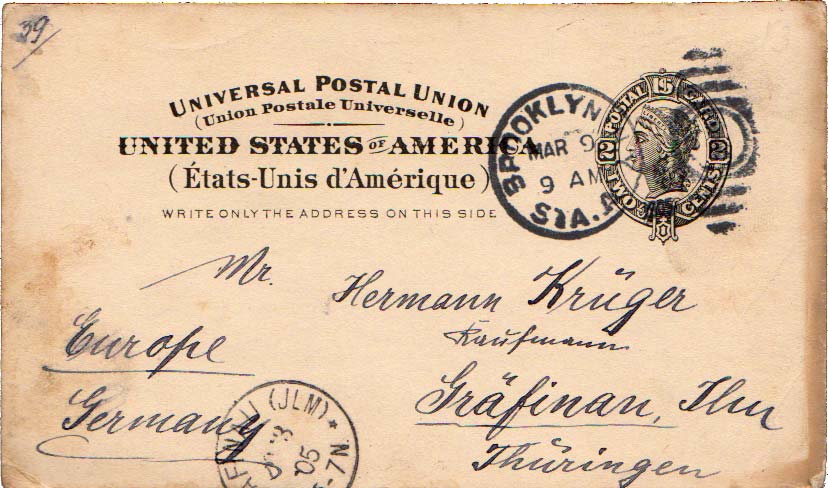 39
UNIVERSAL POSTAL UNION
(Union Postale Universelle)
UNITED STATES OF AMERICA
(États-Unis d'Amérique)
WRITE ONLY THE ADDRESS ON THIS SIDE
BROOKLYN
MAR 9
9 AM
STA. A
POSTAL CARD
2 2
TWO CENTS
Mr. Hermann Krüger
Kaufmann
Europe
Gräfinau, Ilm
Germany
Thüringen
(JLM) *
05
-7N.